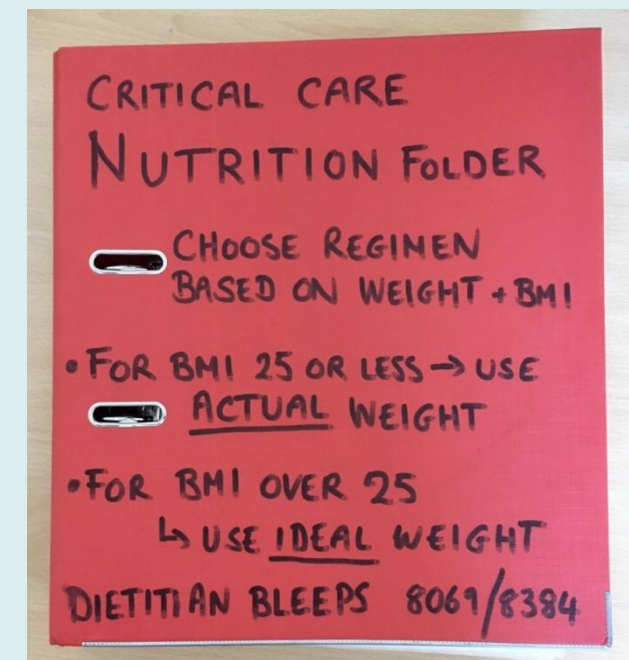 CRITICAL CARE
NUTRITION FOLDER
CHOOSE REGIMEN
BASED ON WEIGHT + BMI
• FOR BMI 25 OR LESS → USE
ACTUAL WEIGHT
• FOR BMI OVER 25
↳ USE IDEAL WEIGHT
DIETITIAN BLEEPS 8069/8384